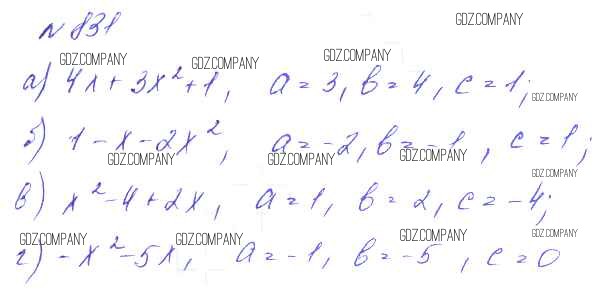 № 831
GDZ.COMPANY
GDZ.COMPANY GDZ.COMPANY GDZ.COMPANY
а) 4x + 3x² + 1, a = 3, b = 4, c = 1;
GDZ.COMPANY
б) 1 - x - 2x², a = -2, b = -1, c = 1;
GDZ.COMPANY GDZ.COMPANY GDZ.COMPANY
GDZ.COMPANY
в) x² - 4 + 2x, a = 1, b = 2, c = -4;
GDZ.COMPANY GDZ.COMPANY GDZ.COMPANY GDZ.COMPANY
г) -x² - 5x, a = -1, b = -5, c = 0